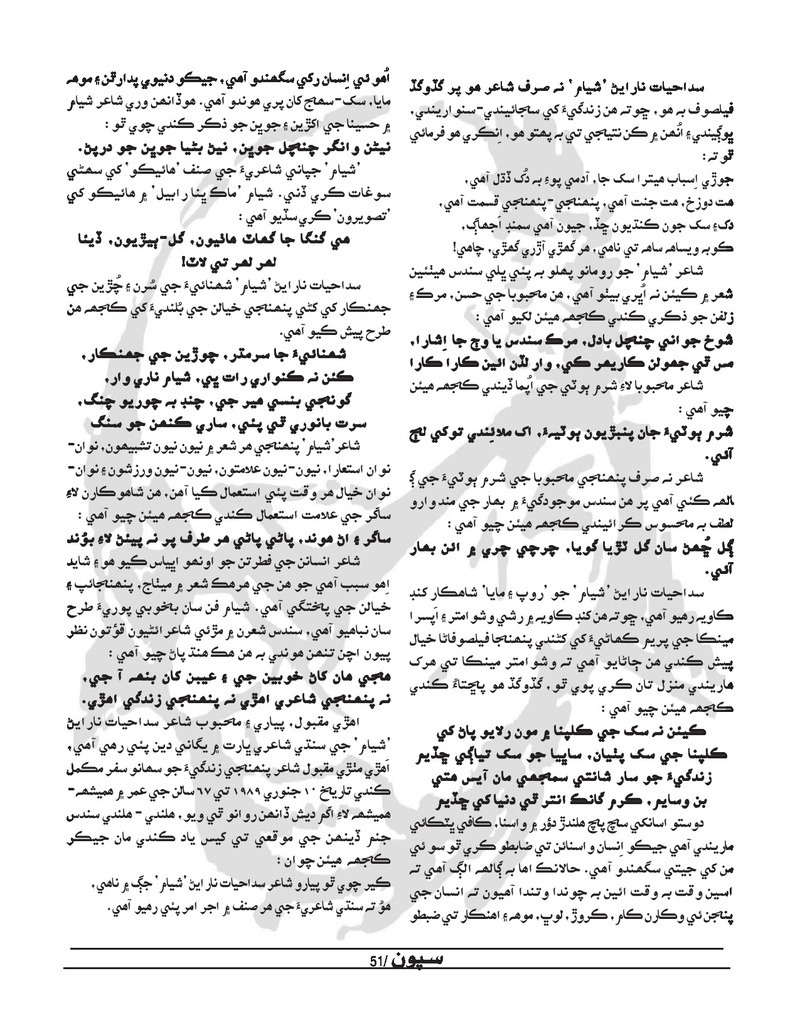 سداحيات نارايڻ 'شيام' نہ صرف شاعر هو پر گڏوگڏ
فيلصوف بہ هو، ڇوتہ هن زندگيءَ کي سڃائيندي-سنواريندي،
ڀوڳيندي۽ اُنهن ۾ ڪن نتيجي تي بہ پهتو هو، اِنڪري هو فرمائي
ٿو تہ:
جوڙي اِسباب هيترا سک جا، آدمي پوءِ بہ دُک ڏڌل آهي،
هت دوزخ، هت جنت آهي، پنهنجي-پنهنجي قسمت آهي،
دک۽ سک جون ڪنڌيون ڇڏ، جيون آهي سمنڊ اَجهاڳ،
ڪوبہ ويساهہ ساهہ تي ناهي، هر گهڙي آڙري گهڙي، چاهي!
شاعر 'شيام' جو رومانو پهلو بہ پئي ڀلي سندس هيٺئين
شعر ۾ ڪيئن نہ اُڀري بيٺو آهي، هن محبوبا جي حسن، مرڪ۽
زلفن جو ذڪري ڪندي ڪجهہ هيئن لکيو آهي:
شوخ جواني چنچل بادل، مرڪ سندس يا وڄ جا اِشارا،
مس ٿي جهولن ڪاريهر کي، وار لڏن ائين ڪارا ڪارا
شاعر محبوبا لاءِ شرم ٻوٽي جي اُپما ڏيندي ڪجهہ هيئن
چيو آهي:
شرم ٻوٽيءَ جان پنبڙيون ٻوٽيءَ، اک ملائيندي توکي لڄ
آئي.
شاعر نہ صرف پنهنجي محبوبا جي شرم ٻوٽيءَ جي ڳ
الهہ ڪئي آهي پر هن سندس موجودگيءَ ۾ بهار جي مند وارو
لطف بہ محسوس ڪرائيندي ڪجهہ هيئن چيو آهي:
ڳل ڇُهڻ سان گل ٽڙيا گويا، چرچي چري ۾ ائن بهار
آئي.
سداحيات نارايڻ 'شيام' جو 'روپ ۽ مايا' شاهڪار کنڊ
ڪاويہ رهيو آهي، ڇوتہ هن کنڊ ڪاويہ ۾ رشي وشوامتر ۽ اَپسرا
مينڪا جي پريم ڪهاڻيءَ کي کڻندي پنهنجا فيلصوفاڻا خيال
پيش ڪندي هن ڄاڻايو آهي تہ وشوامتر مينڪا تي مرڪ
هاريندي منزل تان ڪري پوي ٿو، گڏوگڏ هو پڇتاءُ ڪندي
ڪجهہ هيئن چيو آهي:
ڪيئن نہ سک جي ڪلپنا ۾ مون رلايو پاڻ کي
ڪلپنا جي سک پٺيان، ساڀيا جو سک تياڳي ڇڏيم
زندگيءَ جو سار شانتي سمجهي مان آيس هتي
بن وسايم، ڪرم گانڪ انتر ٿي دنيا کي ڇڏيم
دوستو اسانکي سچ پچ هلندڙ دؤر ۾ واسنا، ڪافي ڀٽڪائي
ماريندي آهي جيڪو اِنسان واسنائن تي ضابطو ڪري ٿو سوئي
من کي جيتي سگهندو آهي. حالانڪ اها بہ ڳالهہ الڳ آهي تہ
اسين وقت بہ وقت ائين بہ چوندا وتندا آهيون تہ انسان جي
پنجن ئي وڪارن ڪام، ڪروڙ، لوڀ، موهہ ۽ اهنڪار تي ضبطو
اُهوئي اِنسان رکي سگهندو آهي، جيڪو دنيوي پدارٿن ۽ موهہ
مايا، سک-سهڃ کان پري هوندو آهي. هوڏانهن وري شاعر شيام
۾ حسينا جي اکڙين ۽ جوڀن جو ذڪر ڪندي چوي ٿو:
نيڻن وانگر چنچل جوڀن، نيڻ بڻيا جوڀن جو درپڻ.
'شيام' جپاني شاعريءَ جي صنف 'هائيڪو' کي سهڻي
سوغات ڪري ڏني. شيام 'ماڪ ڀنا رابيل' ۾ هائيڪو کي
'تصويرون' ڪري سڏيو آهي:
هي گنگا جا گهاٽ هائيون، گل-ٻيڙيون، ڏيئا
لهر لهر تي لاٽ!
سداحيات نارايڻ 'شيام' شهنائيءَ جي سُرن ۽ چُڙين جي
جهنڪار کي کڻي پنهنجي خيالن جي بُلنديءَ کي ڪجهہ هن
طرح پيش ڪيو آهي.
شهنائيءَ جا سرمٽر، چوڙين جي جهنڪار،
ڪئن نہ ڪنواري رات پي، شيام ناري وار،
گونجي بنسي هير جي، چنڊ بہ چوريو چنگ،
سرت بانوري ٿي پئي، ساري ڪنهن جو سنگ
شاعر 'شيام' پنهنجي هر شعر ۾ نيون نيون تشبيهون، نوان-
نوان استعارا، نيون-نيون علامتون، نيون-نيون ورزشون ۽ نوان-
نوان خيال هر وقت پئي استعمال ڪيا آهن، هن شاهوڪارن لاءِ
ساگر جي علامت استعمال ڪندي ڪجهہ هيئن چيو آهي:
ساگر ۽ اڻ هوند، پاڻي پاڻي هر طرف پر نہ پيئڻ لاءِ ٻوُند
شاعر انسانن جي فطرتن جو اونهو اڀياس ڪيو هو۽ شايد
اِهو سبب آهي جو هن جي هرهڪ شعر ۾ ميٺاج، پنهنجائپ ۽
خيالن جي پختگي آهي. شيام فن سان بخوبي پوريءَ طرح
سان نباهيو آهي، سندس شعرن ۾ مڙئي شاعراڻيون قوُتون نظر
پيون اچن تنهن هوندي بہ هن هڪ هنڌ پاڻ چيو آهي:
هجي مان کاڻ خوبين جي ۽ عيبن کان بنهہ آ جي،
نہ پنهنجي شاعري اهڙي نہ پنهنجي زندگي اهڙي.
اهڙي مقبول، پياري ۽ محبوب شاعر سداحيات نارايڻ
'شيام' جي سنڌي شاعري ڀارت ۾ يگاني ڏين پئي رهي آهي،
اَهڙي مٺڙي مقبول شاعر پنهنجي زندگيءَ جو سهانو سفر مڪمل
ڪندي تاريخ ۱۰ جنوري ۱۹۸۹ تي ۶۷ سالن جي عمر ۾ هميشهہ-
هميشهہ لاءِ اگم ديش ڏانهن روانو ٿي ويو، هلندي - هلندي سندس
جنم ڏينهن جي موقعي تي کيس ياد ڪندي مان جيڪر
ڪجهہ هيئن چوان:
ڪير چوي ٿو پيارو شاعر سداحيات نارايڻ 'شيام' جڳ ۾ ناهي،
هوُ تہ سنڌي شاعريءَ جي هر صنف ۾ اجر امر پئي رهيو آهي.
سپون /51